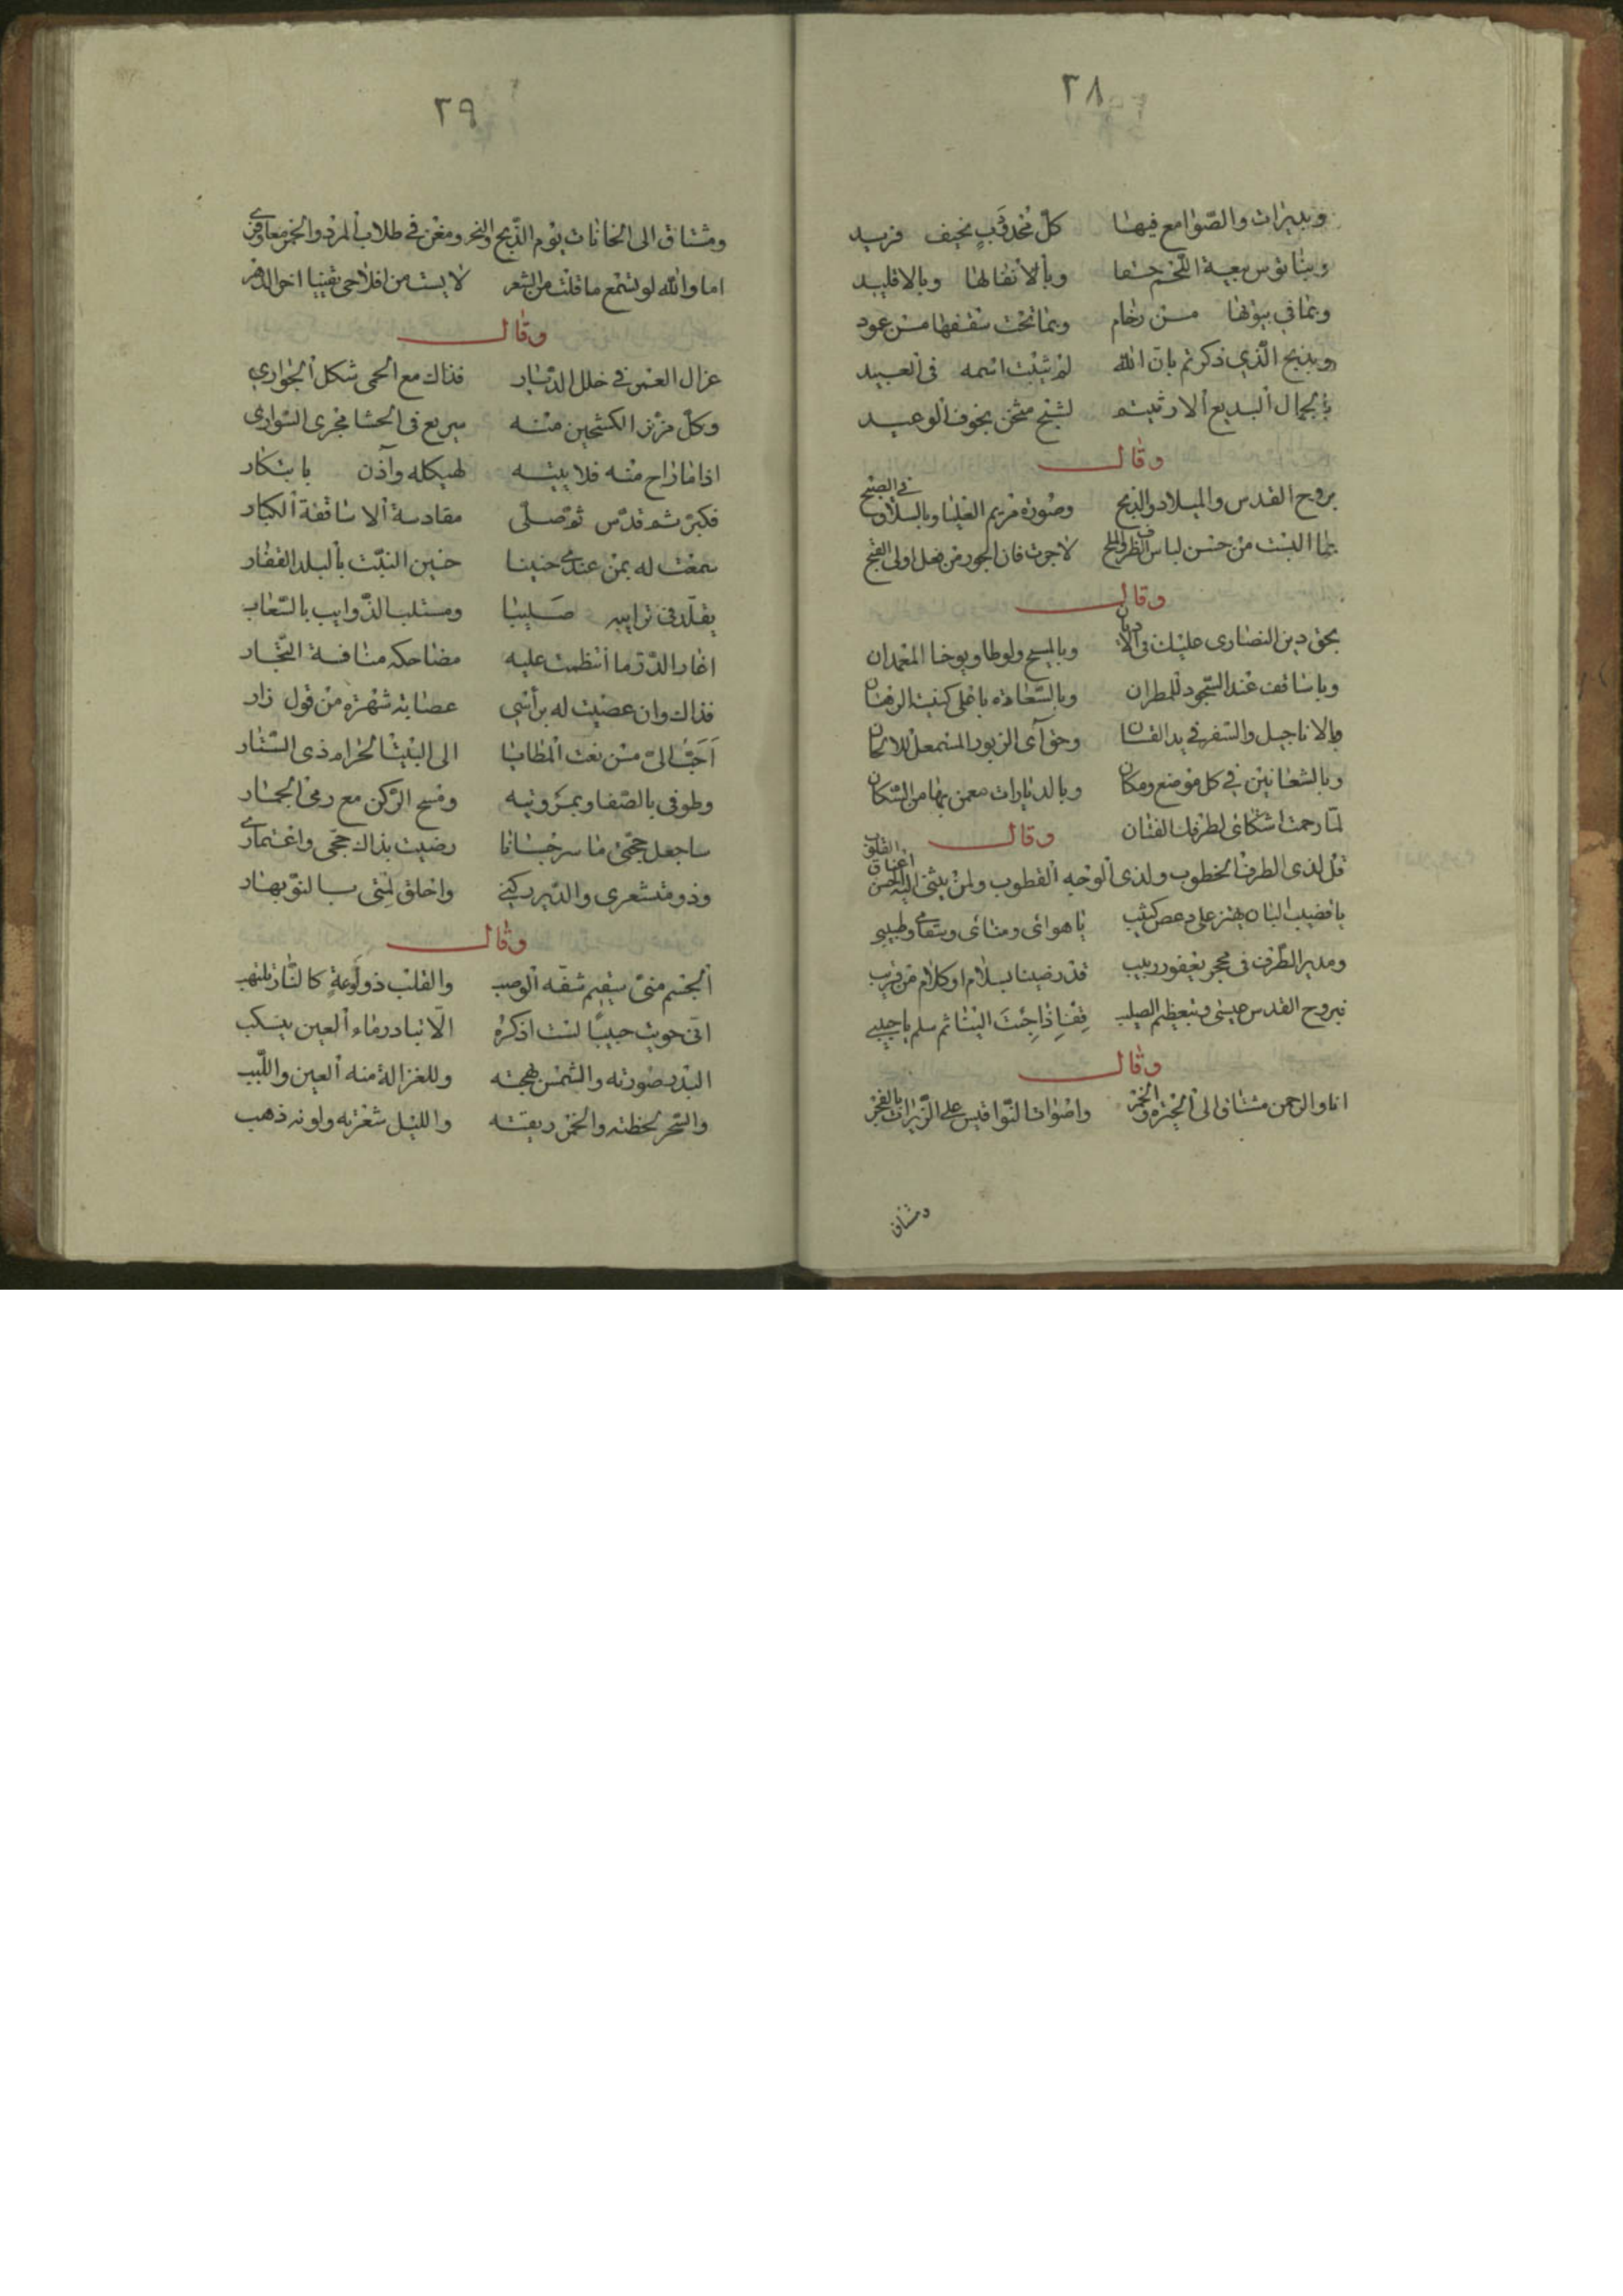 ٢٨
وبديرات والصوامع فيها كل محدقب نحيف فريد
وبالانقالها وبالاقليد
وبما في بيوتها من رخام وبما تحت سقفها من عود
وبذبح الذي ذكرتم بان الله لم يثبت اسمه في العبيد
بالجمال البديع الا رثيتم لشبح مثخن بخوف الوعيد
وقال
بروح القدس والميلاد والذبح وصورة مريم العليا وبالسلاق في الصبح
بما البست من حسن لباس الظرف والملح لا جرت فان الجور من فعل اولى القبح
وقال
بحق دين النصارى عليك في الاديان وبالمسيح ولوطا ويوحنا المعمدان
وباساقف عند السجود للمطران وبالسعاده باعلى كنيسة الرهبان
والاناجيل والسفر في يد القسان وحق آي الزبور المستمعل للالحان
وبالشعانين في كل موضع ومكان وبالديارات معمن بها من السكان
لما رحمت اشتكائ لطرفك الفتان
وقال
قل لذى الطرف الخطوب ولذى الوجه القطوب ولمن يثنى اليه الحسن اعناق القلوب
يا قضيب البان يهتز على دعص كثيب يا هوائ ومنائ وسقامى وطبيبى
ومدير الطرف في محجر يعفور ربيب قد رضينا بسلام او كلام من قريب
فبروح القدس عيسى وبتعظيم الصليب قف اذا جئت الينا ثم سلم يا حبيبي
وقال
انا والرحمن مشتاق الى الجيزه والخمر واصوات النواقيس على الزيرات بالفجر
ومشتاق
٢٩
ومشتاق الى الحانات يوم الذبح والنحر ومغرى في طلاب المرد والخمر معا وفرى
اما والله لو تسمع ما قلت من الشعر لايست من افلاحى يقينا اخر الدهر
وقال
غزال العنس في خلل الديار فذاك مع الحمى شكل الجوارى
وكل مزنر الكشحين منه سريع في الحشا مجرى السوارى
اذا ما راح منه فلا بيته لهيكله وآذن بابتكار
فكبر ثم قدس ثم صلى مقادسة الاساقفة الكبار
سمعت له بمن عندى حنينا حنين النبت بالبلد القفار
يقلد في ترايبه صليبا ومستلب الذوايب بالسعاب
اغار الدر ما انتظمت عليه مضاحكه منافسة التجار
فذاك وان عصيت له برأسي عصابة شهرة من قول زار
احب الى من نعت المطايا الى البيت الحرام ذى الستار
وطوفى بالصفا وبمروتيه ومسح الركن مع رمى الجمار
ساجعل حجتى ما سرجسانا رضيت بذاك حجى واعتمارى
وذو متشعرى والدير ركنى واحلق لمتى بالنوبهار
وقال
الجسم منى سقيم شفه الوصب والقلب ذو لوعة كالنار يلتهب
انى حويت حبيبا لست اذكره الا تبادر ماء العين ينسكب
البدر صورته والشمس بهجته وللغزالة منه العين واللبب
والسحر لحظته والخمر ريقته والليل شعرته ولونه ذهب